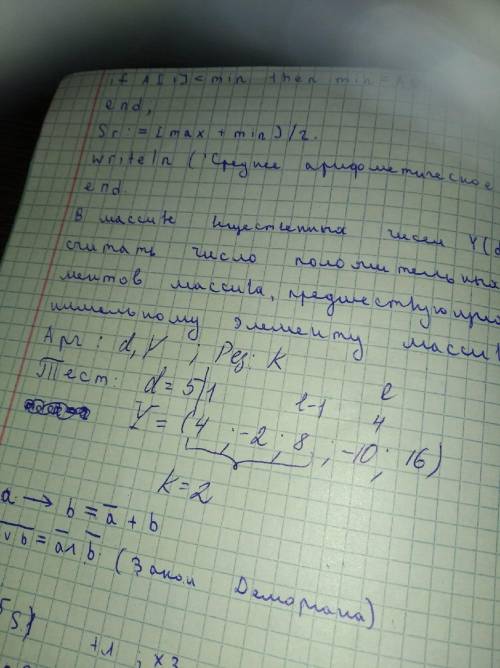 if A[i]<min then min=A[
end;
Sr:=(max+min)/2.
writeln ('Среднее арифметическое
end.
В массиве вещественных чисел Y(d
считать число положительных
ментов массива, предшествующих
нимальному элементу масси
Арг: d, Y ; Рез: K
Тест: d=5
l-1 l
4
Y=(4 ; -2 ; 8 ; -10 ; 16)
K=2
a → b = a̅ + b
v b = a̅ ∧ b̅. (Закон Деморгана)
+1 ; x2